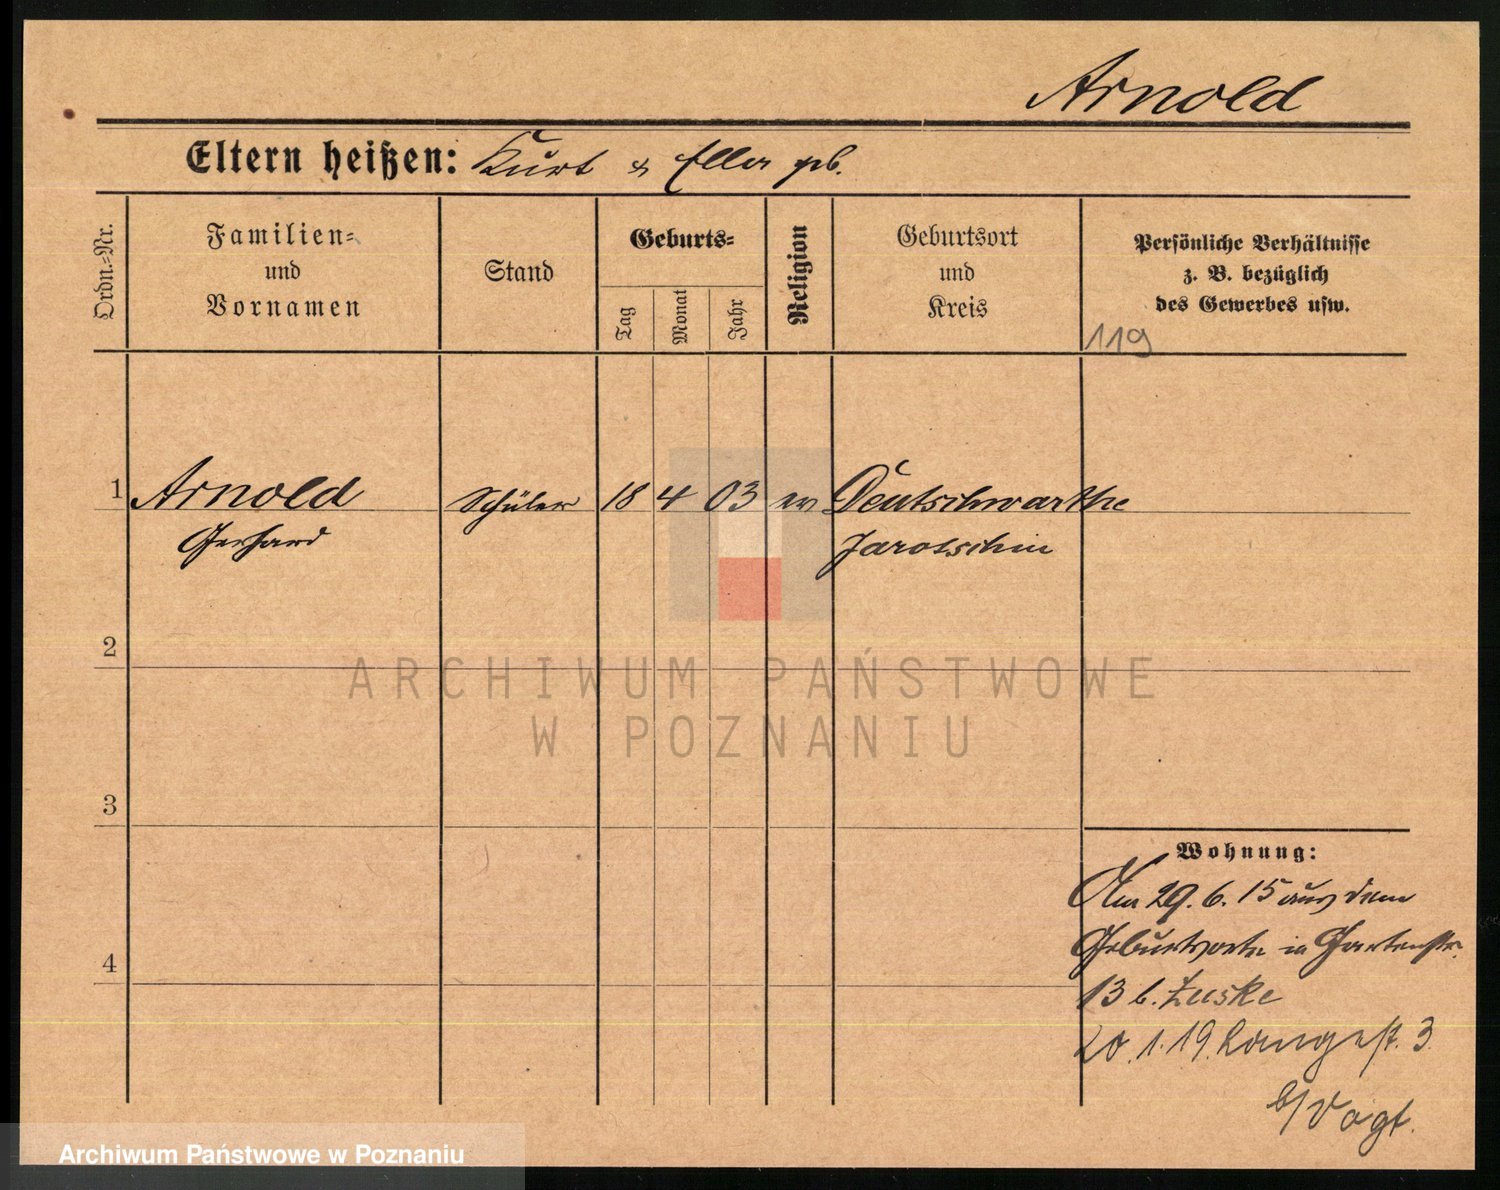 Arnold
Eltern heißen: Kurt & Ella geb.
Ordn.=Nr.
Familien=
und
Vornamen
Stand
Geburts=
Tag
Monat
Jahr
Religion
Geburtsort
und
Kreis
Persönliche Verhältnisse
z. B. bezüglich
des Gewerbes usw.
119
1 Arnold Schüler 18 4 03 ev Deutschwarthe
Gerhard Jarotschin
2
ARCHIWUM PAŃSTWOWE
W POZNANIU
3
Wohnung:
Am 29. 6. 15 aus dem
Geburtsorte in Gartenstr.
4
13 b. Zuske
20. 1. 19. Langestr. 3
b/ Vogt.
Archiwum Państwowe w Poznaniu